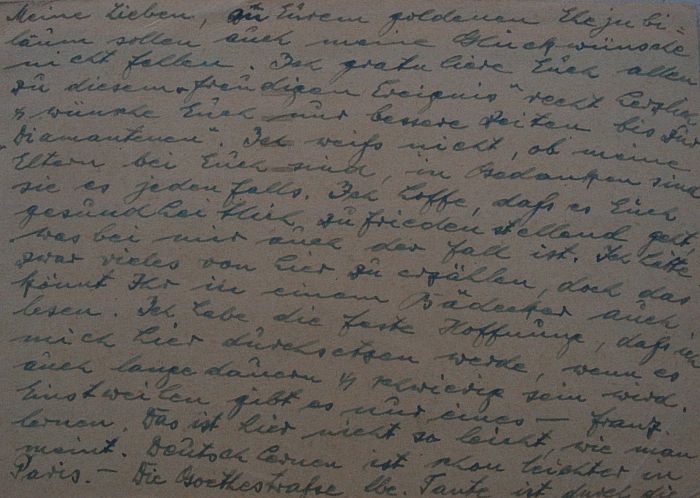 Meine Lieben, zu Eurem goldenen Ehejubi-
läum sollen auch meine Glückwünsche
nicht fehlen. Ich gratuliere Euch allen
zu diesem "freudigen Ereignis" recht herzlich
& wünsche Euch nur bessere Zeiten bis zur
"Diamantenen". Ich weiß nicht, ob meine
Eltern bei Euch sind, in Gedanken sind
sie es jedenfalls. Ich hoffe, daß es Euch
gesundheitlich zufriedenstellend geht,
was bei mir auch der Fall ist. Ich hätte
zwar vieles von hier zu erzählen, doch das
könnt Ihr in einem Bädecker auch
lesen. Ich habe die feste Hoffnung, daß ich
mich hier durchsetzen werde, wenn es
auch lange dauern & schwierig sein wird.
Einstweilen gibt es nur eines – franz.
lernen. Das ist hier nicht so leicht, wie man
meint. Deutsch lernen ist schon leichter in
Paris. – Die Goethestraße lbe. Tante ist